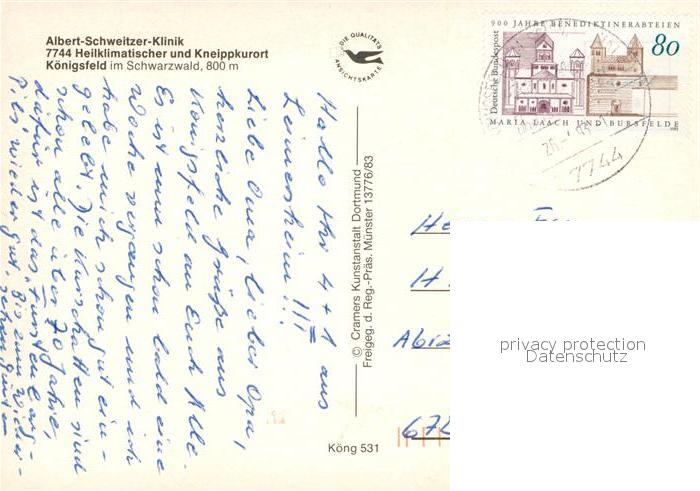 Albert-Schweitzer-Klinik
7744 Heilklimatischer und Kneippkurort
Königsfeld im Schwarzwald, 800 m
DIE QUALITÄTS
ANSICHTSKARTE
900 JAHRE BENEDIKTINERABTEIEN
80
Deutsche Bundespost
MARIA LAACH UND BURSFELDE
7744
Hallo Ihr 4 + 1 aus
Leimersheim!!!
Liebe Oma, lieber Opa,
herzliche Grüße aus
Königsfeld an Euch Alle.
Es ist nun schon bald eine
Woche vergangen und ich
habe mich schon gut ein-
gelebt. Die Kurschatten sind
schon alle über 70 Jahre,
dafür ist das
wieder gut. Bis zum
© Cramers Kunstanstalt Dortmund
Freigeg. d. Reg.-Präs. Münster 13776/83
Köng 531
privacy protection
Datenschutz